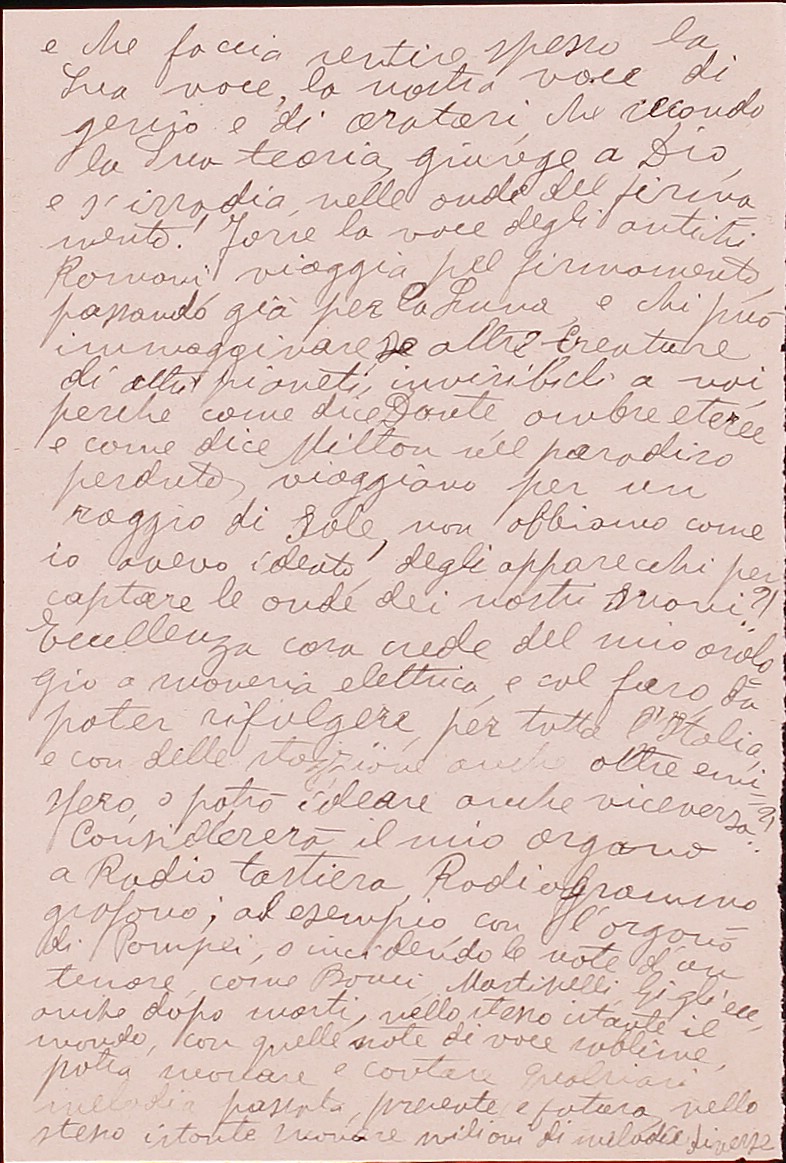 e che faccia sentire spesso la
Sua voce, la nostra voce di
genio e di oratori, che secondo
la Sua teoria, giunge a Dio,
e s'irradia, nelle onde del firma
mento! Forse la voce degli antichi
Romani viaggia pel firmamento,
passando già per la Luna, e chi può
immagginare se altre creature
di altri pianeti, invisibili a noi,
perche come dice Dante ombre eteree
e come dice Milton nel paradiso
perduto, viaggiano per un
raggio di Sole, non abbiamo come
io avevo ideato, degli apparecchi per
captare le onde dei nostri suoni?!
Eccellenza cosa crede del mio orolo
gio a suoneria elettrica, e col faro, da
poter rifulgere, per tutta l'Italia,
e con delle stazzione anche oltre emi-
sfero, o potrò ideare anche viceversa?!
Considererà il mio organo
a Radio tastiera, Radiogrammo
grafono; ad esempio con l'organo
di Pompei, o incidendo le note d'un
tenore, come Bonci, Martinelli, Gigli ecc,
anche dopo morti, nello stesso istante il
mondo, con quelle note di voce sublime,
potrà suonare e cantare qualsiasi
melodia passata, presente, e futura, nello
stesso istante suonare milioni di melodie diverse